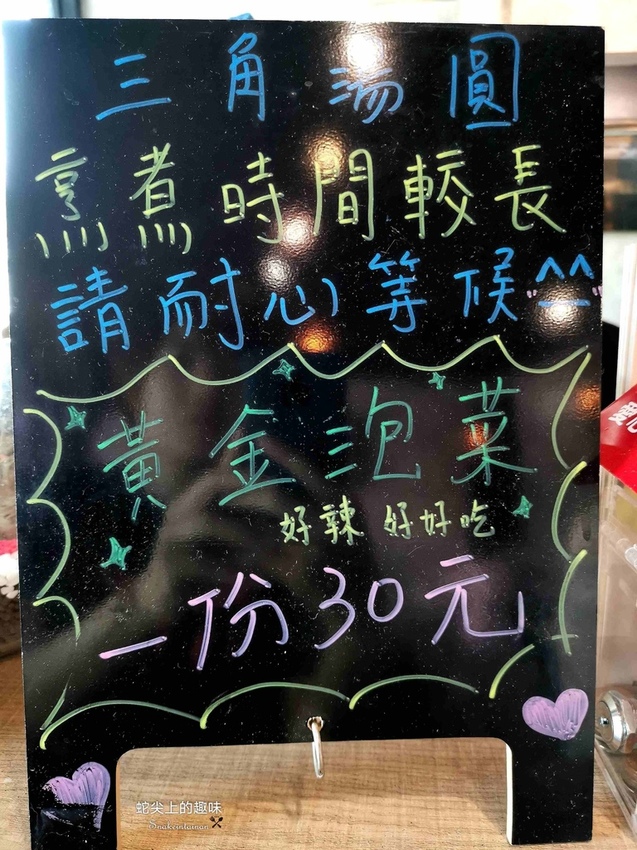 三角湯圓
烹煮時間較長
請耐心等候^^
黃金泡菜
好辣 好好吃
一份30元
蛇尖上的趣味
Snakeintainan